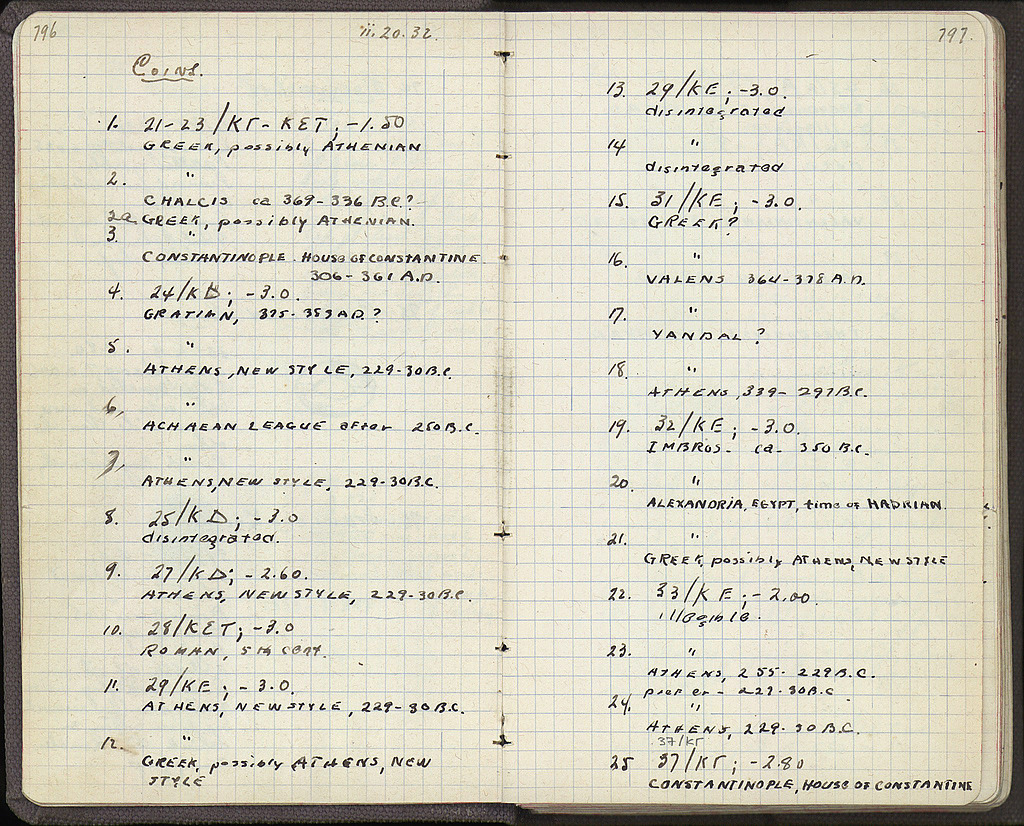 796
ii. 20. 32.
Coins.
1. 21-23/ΚΓ - ΚΕΤ; -1.50
GREEK, possibly ATHENIAN
2. "
CHALCIS ca 369-336 B.C.?
2a. GREEK, possibly ATHENIAN.
3. "
CONSTANTINOPLE. HOUSE OF CONSTANTINE
306-361 A.D.
4. 24/ΚΔ; -3.0.
GRATIAN, 375-383 A.D.?
5. "
ATHENS, NEW STYLE, 229-30 B.C.
6. "
ACHAEAN LEAGUE after 250 B.C.
7. "
ATHENS, NEW STYLE, 229-30 B.C.
8. 25/ΚΔ; -3.0
disintegrated.
9. 27/ΚΔ; -2.60.
ATHENS, NEW STYLE, 229-30 B.C.
10. 28/ΚΕΤ; -3.0
ROMAN, 5th cent.
11. 29/ΚΕ; -3.0.
ATHENS, NEW STYLE, 229-30 B.C.
12. "
GREEK, possibly ATHENS, NEW
STYLE
797.
13. 29/ΚΕ; -3.0.
disintegrated
14 "
disintegrated
15. 31/ΚΕ; -3.0.
GREEK?
16. "
VALENS 364-378 A.D.
17. "
VANDAL?
18. "
ATHENS, 339-297 B.C.
19. 32/ΚΕ; -3.0.
IMBROS- ca. 350 B.C.
20. "
ALEXANDRIA, EGYPT, time of HADRIAN.
21. "
GREEK, possibly ATHENS, NEW STYLE
22. 33/ΚΕ; -2.00.
illegible.
23. "
ATHENS, 255-229 B.C.
pref er - 229-30 B.C
24. "
ATHENS, 229-30 B.C.
37/ΚΓ
25 37/ΚΓ; -2.80
CONSTANTINOPLE, HOUSE OF CONSTANTINE